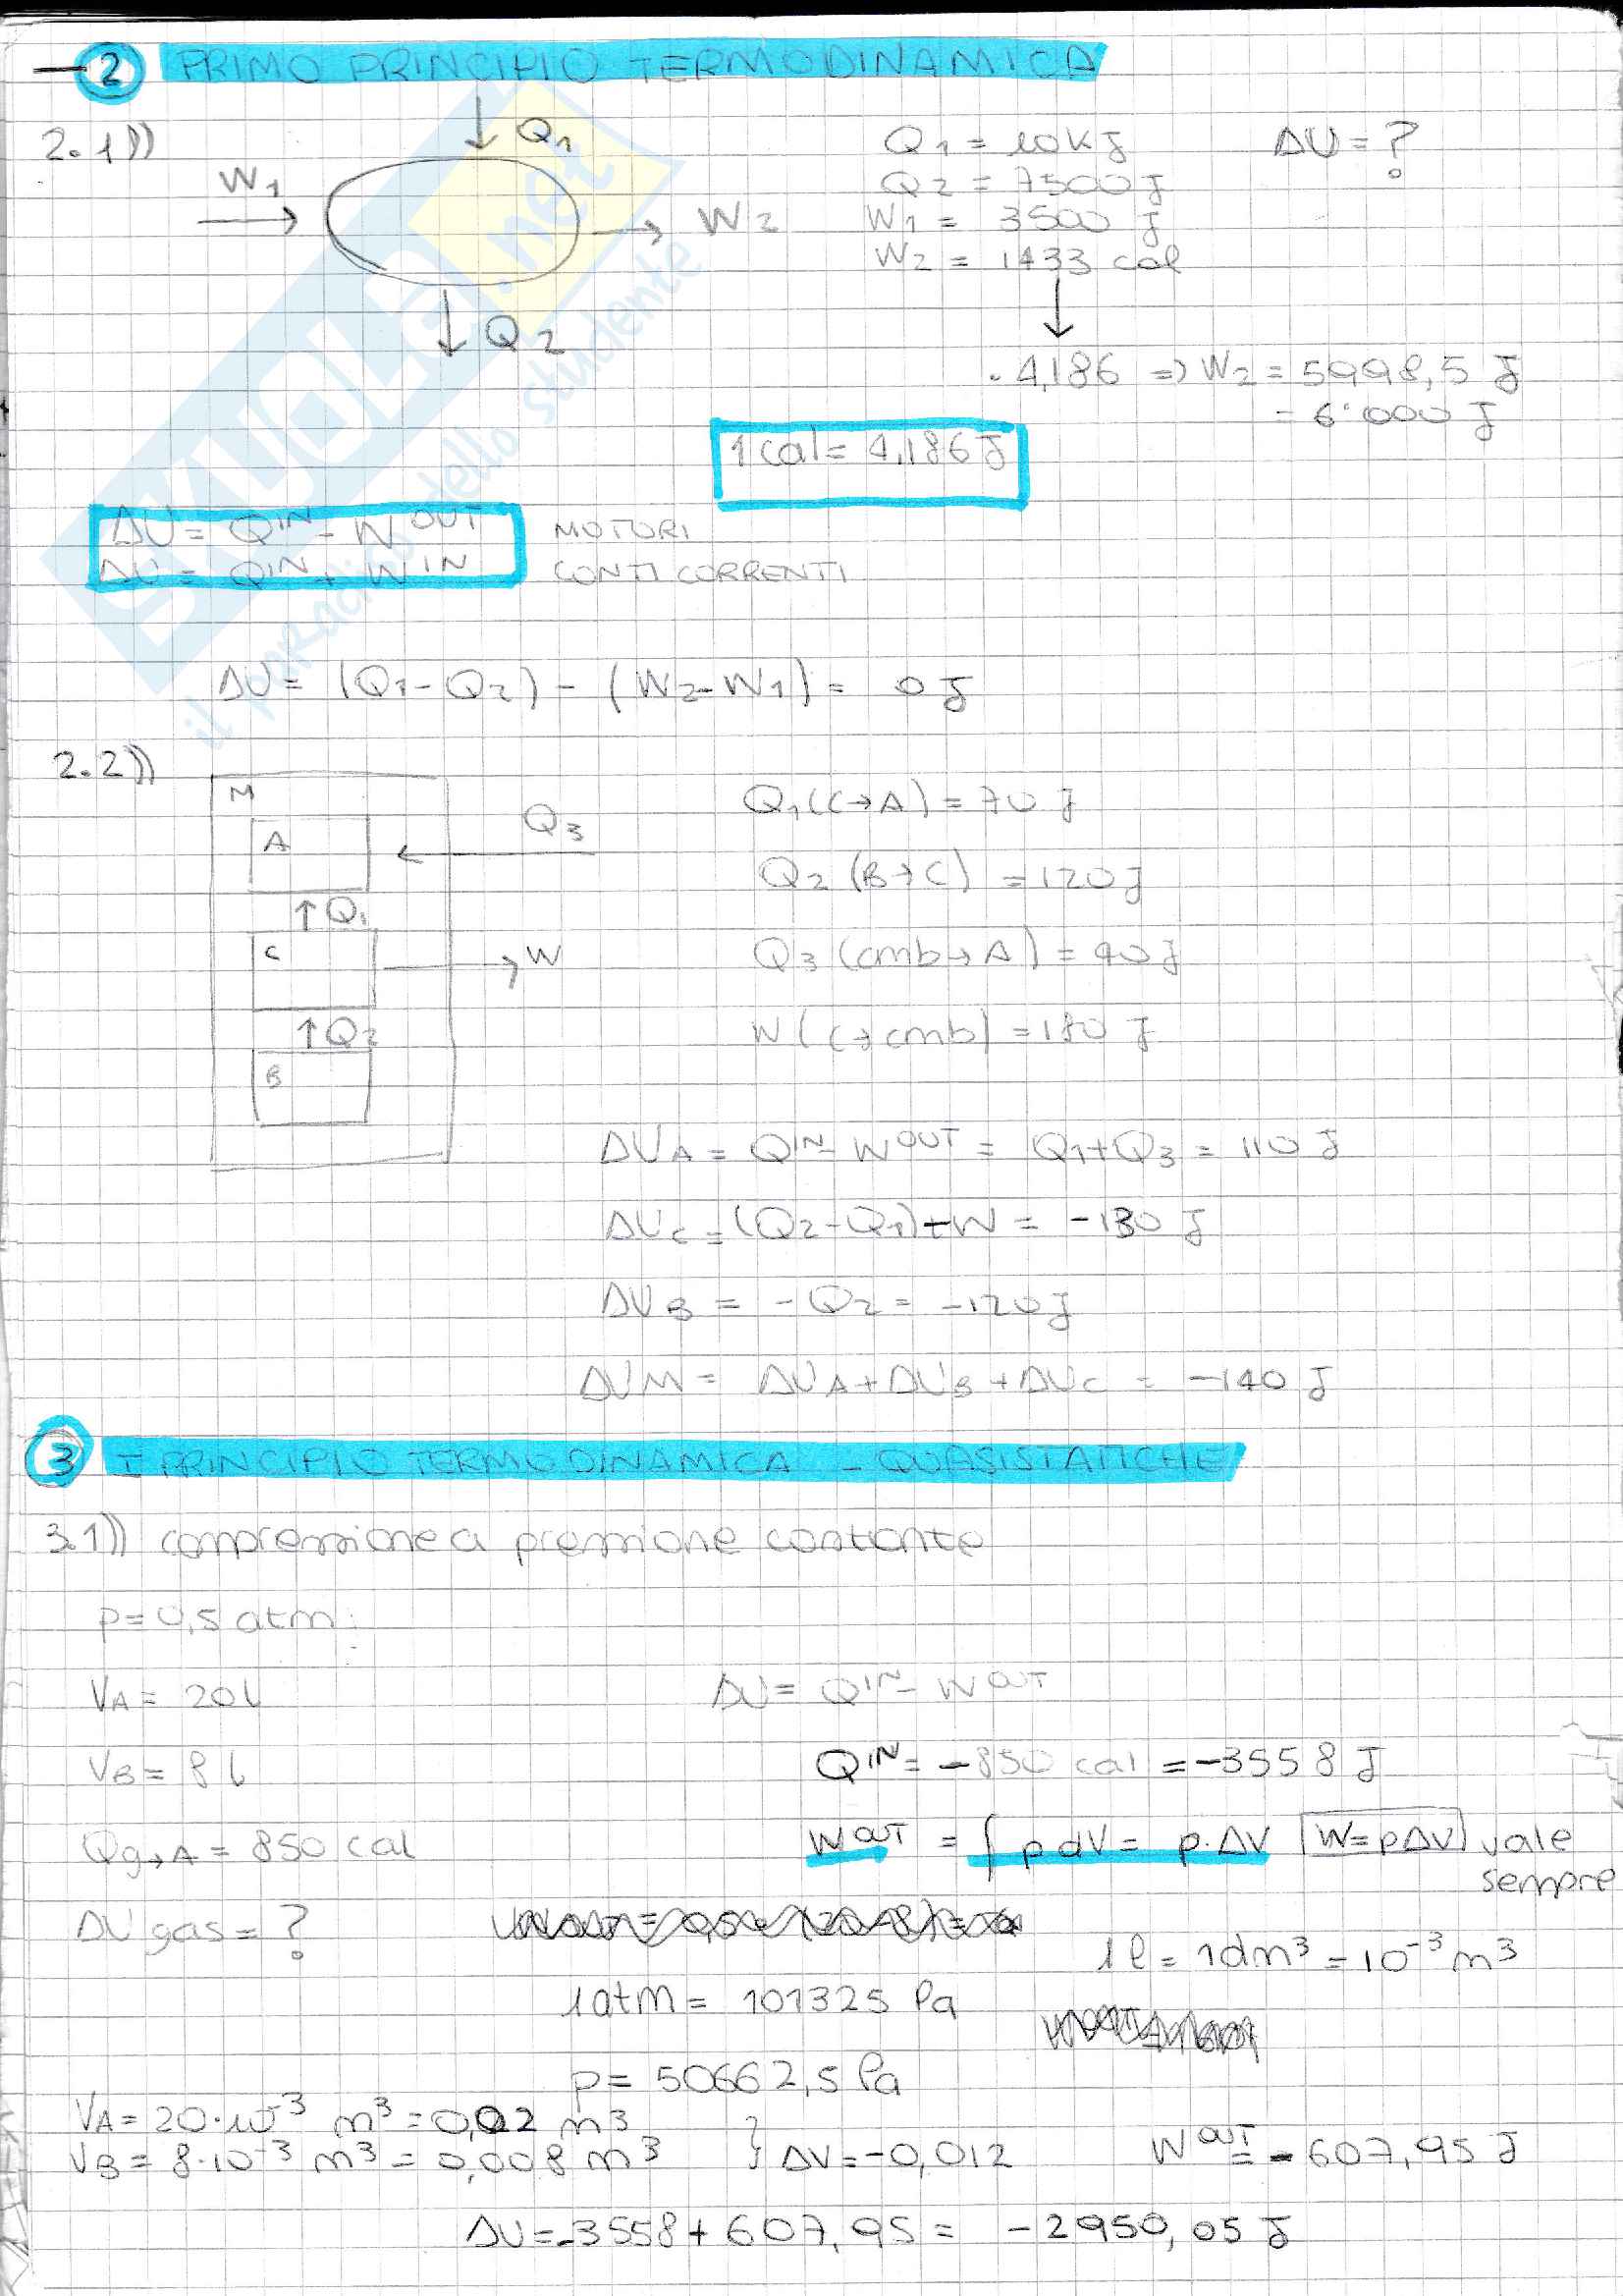 2 PRIMO PRINCIPIO TERMODINAMICA
2.1))
Q1
W1
W2
Q2
Q1 = 10KJ
Q2 = 7500 J
W1 = 3500 J
W2 = 1433 cal
ΔU = ?
· 4,186 => W2 = 5998,5 J
= 6'000 J
1 cal = 4,186 J
ΔU = Q^IN - W^OUT MOTORI
ΔU = Q^IN + W^IN CONTI CORRENTI
ΔU = (Q1 - Q2) - (W2 - W1) = 0 J
2.2))
M
A
Q3
↑Q1
C
W
↑Q2
B
Q1 (C→A) = 70 J
Q2 (B→C) = 120 J
Q3 (amb→A) = 40 J
W (C→amb) = 180 J
ΔUA = Q^IN - W^OUT = Q1+Q3 = 110 J
ΔUC = (Q2 - Q1) - W = -130 J
ΔUB = -Q2 = -120 J
ΔUM = ΔUA + ΔUB + ΔUC = -140 J
3 I PRINCIPIO TERMODINAMICA - QUASISTATICHE
3.1)) compressione a pressione costante
p = 0,5 atm
VA = 20 l
VB = 8 l
Qg→A = 850 cal
ΔU gas = ?
ΔU = Q^IN - W^OUT
Q^IN = -850 cal = -3558 J
W^OUT = ∫ p dV = p·ΔV W = pΔV vale
sempre
1 l = 1 dm³ = 10⁻³ m³
1 atm = 101325 Pa
p = 50662,5 Pa
VA = 20·10⁻³ m³ = 0,02 m³
VB = 8·10⁻³ m³ = 0,008 m³
} ΔV = -0,012
W^OUT = -607,95 J
ΔU = -3558 + 607,95 = -2950,05 J
SKUOLA.net
il paradiso dello studente